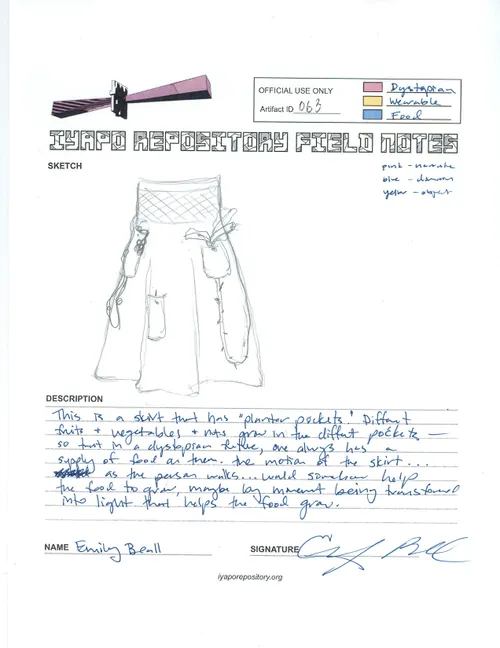 OFFICIAL USE ONLY
Artifact ID 063
Dystopian
Wearable
Food
IYAPO REPOSITORY FIELD NOTES
SKETCH
pink - narrative
blue - domain
yellow - object
DESCRIPTION
This is a skirt that has "planter pockets." Different
fruits + vegetables + nuts grow in the diffent pockets —
so that in a dystopian future, one always has a
supply of food on them. The motion of the skirt...
as the person walks... would somehow help
the food to grow, maybe by movement being transformed
into light that helps the food grow.
NAME Emily Beall
SIGNATURE
iyaporepository.org